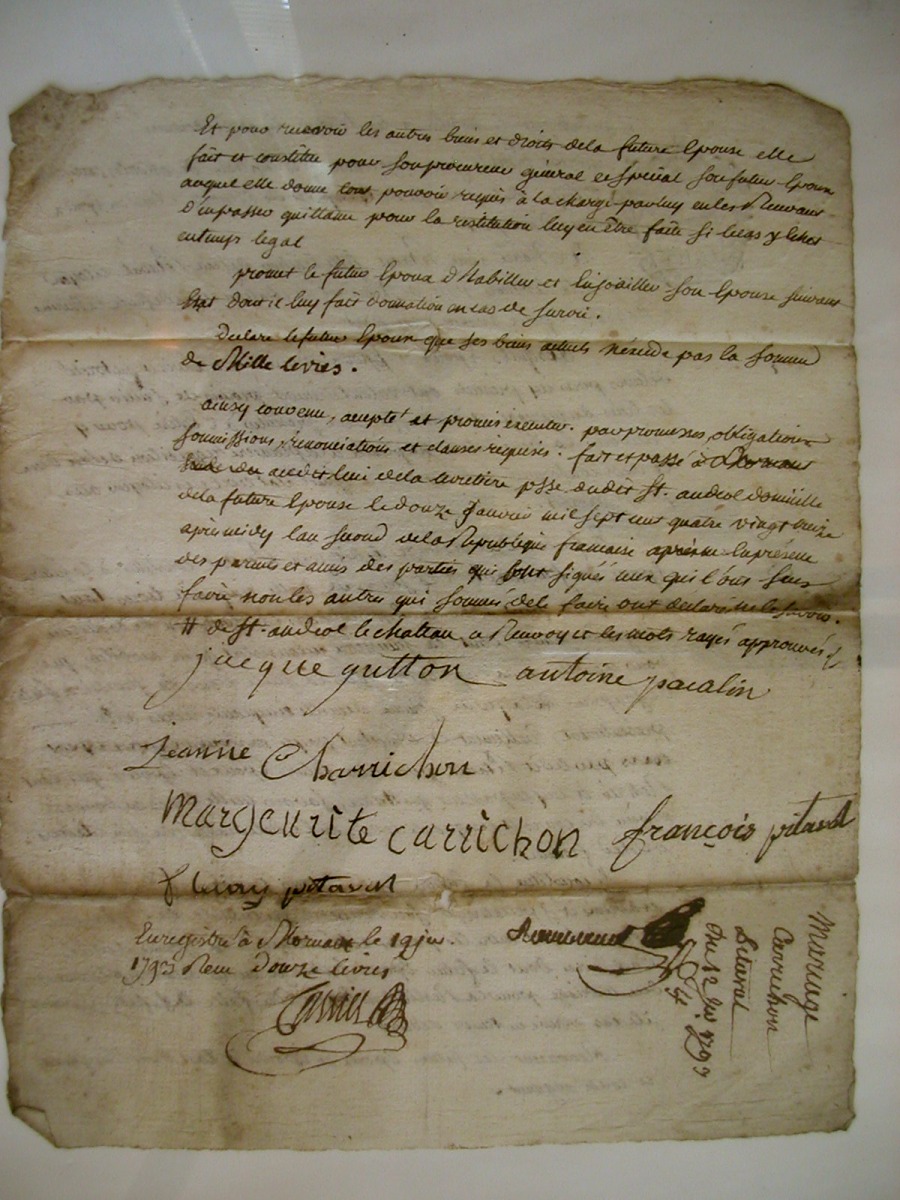 Et pour recevoir les autres biens et droits dela future Epouse elle
fait et constitue pour son procureur général et spécial son futur Epoux
auquel elle donne tout pouvoir requis à la charge par luy en les Recevant
d'en passer quittance pour la restitution luy en être faite si le cas y échet
en temps legal
promet le futur Epoux d'habiller et Enjoailler son Epouse suivant
Etat dont il luy fait donnation en cas de survie.
Declare le futur Epoux que ses biens actuels n'éxcede pas la somme
de Mille livres.
ainsy convenu, accepté et promis éxecuter. par promesses, obligations
soumissions, renonciations et clauses requises. fait et passé à Mornant
dela future Epouse le douze Janvier mil sept cent quatre vingt treize
après midy l'an second dela République francaise en présence
des parents et amis des parties qui ont signés ceux qui l'ont sceu
faire non les autres qui sommés dele faire ont declaré ne le savoir.
# de St. andeol le chateau a Renvoy et les mots rayés approuvés
jacque gutton antoine pacalin
Jeanne Charrichon
Margeurite carrichon françois pitaval
fleury pitaval
Enregistré à Mornant le 19 jer.
1793 Reçu Douze livres
Mariage
Carrichon
Pitaval
Du 12 Jer 1793